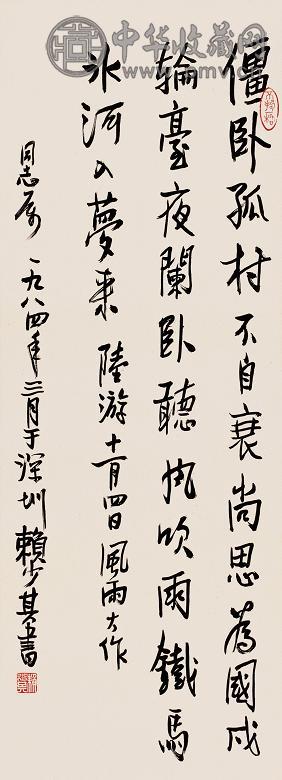 僵卧孤村不自哀尚思為國戍
輪臺夜闌卧聽風吹雨鐵馬
冰河入夢来 陸游十一月四日風雨大作
同志属 一九八四年三月于深圳 賴少其书
中华收藏网